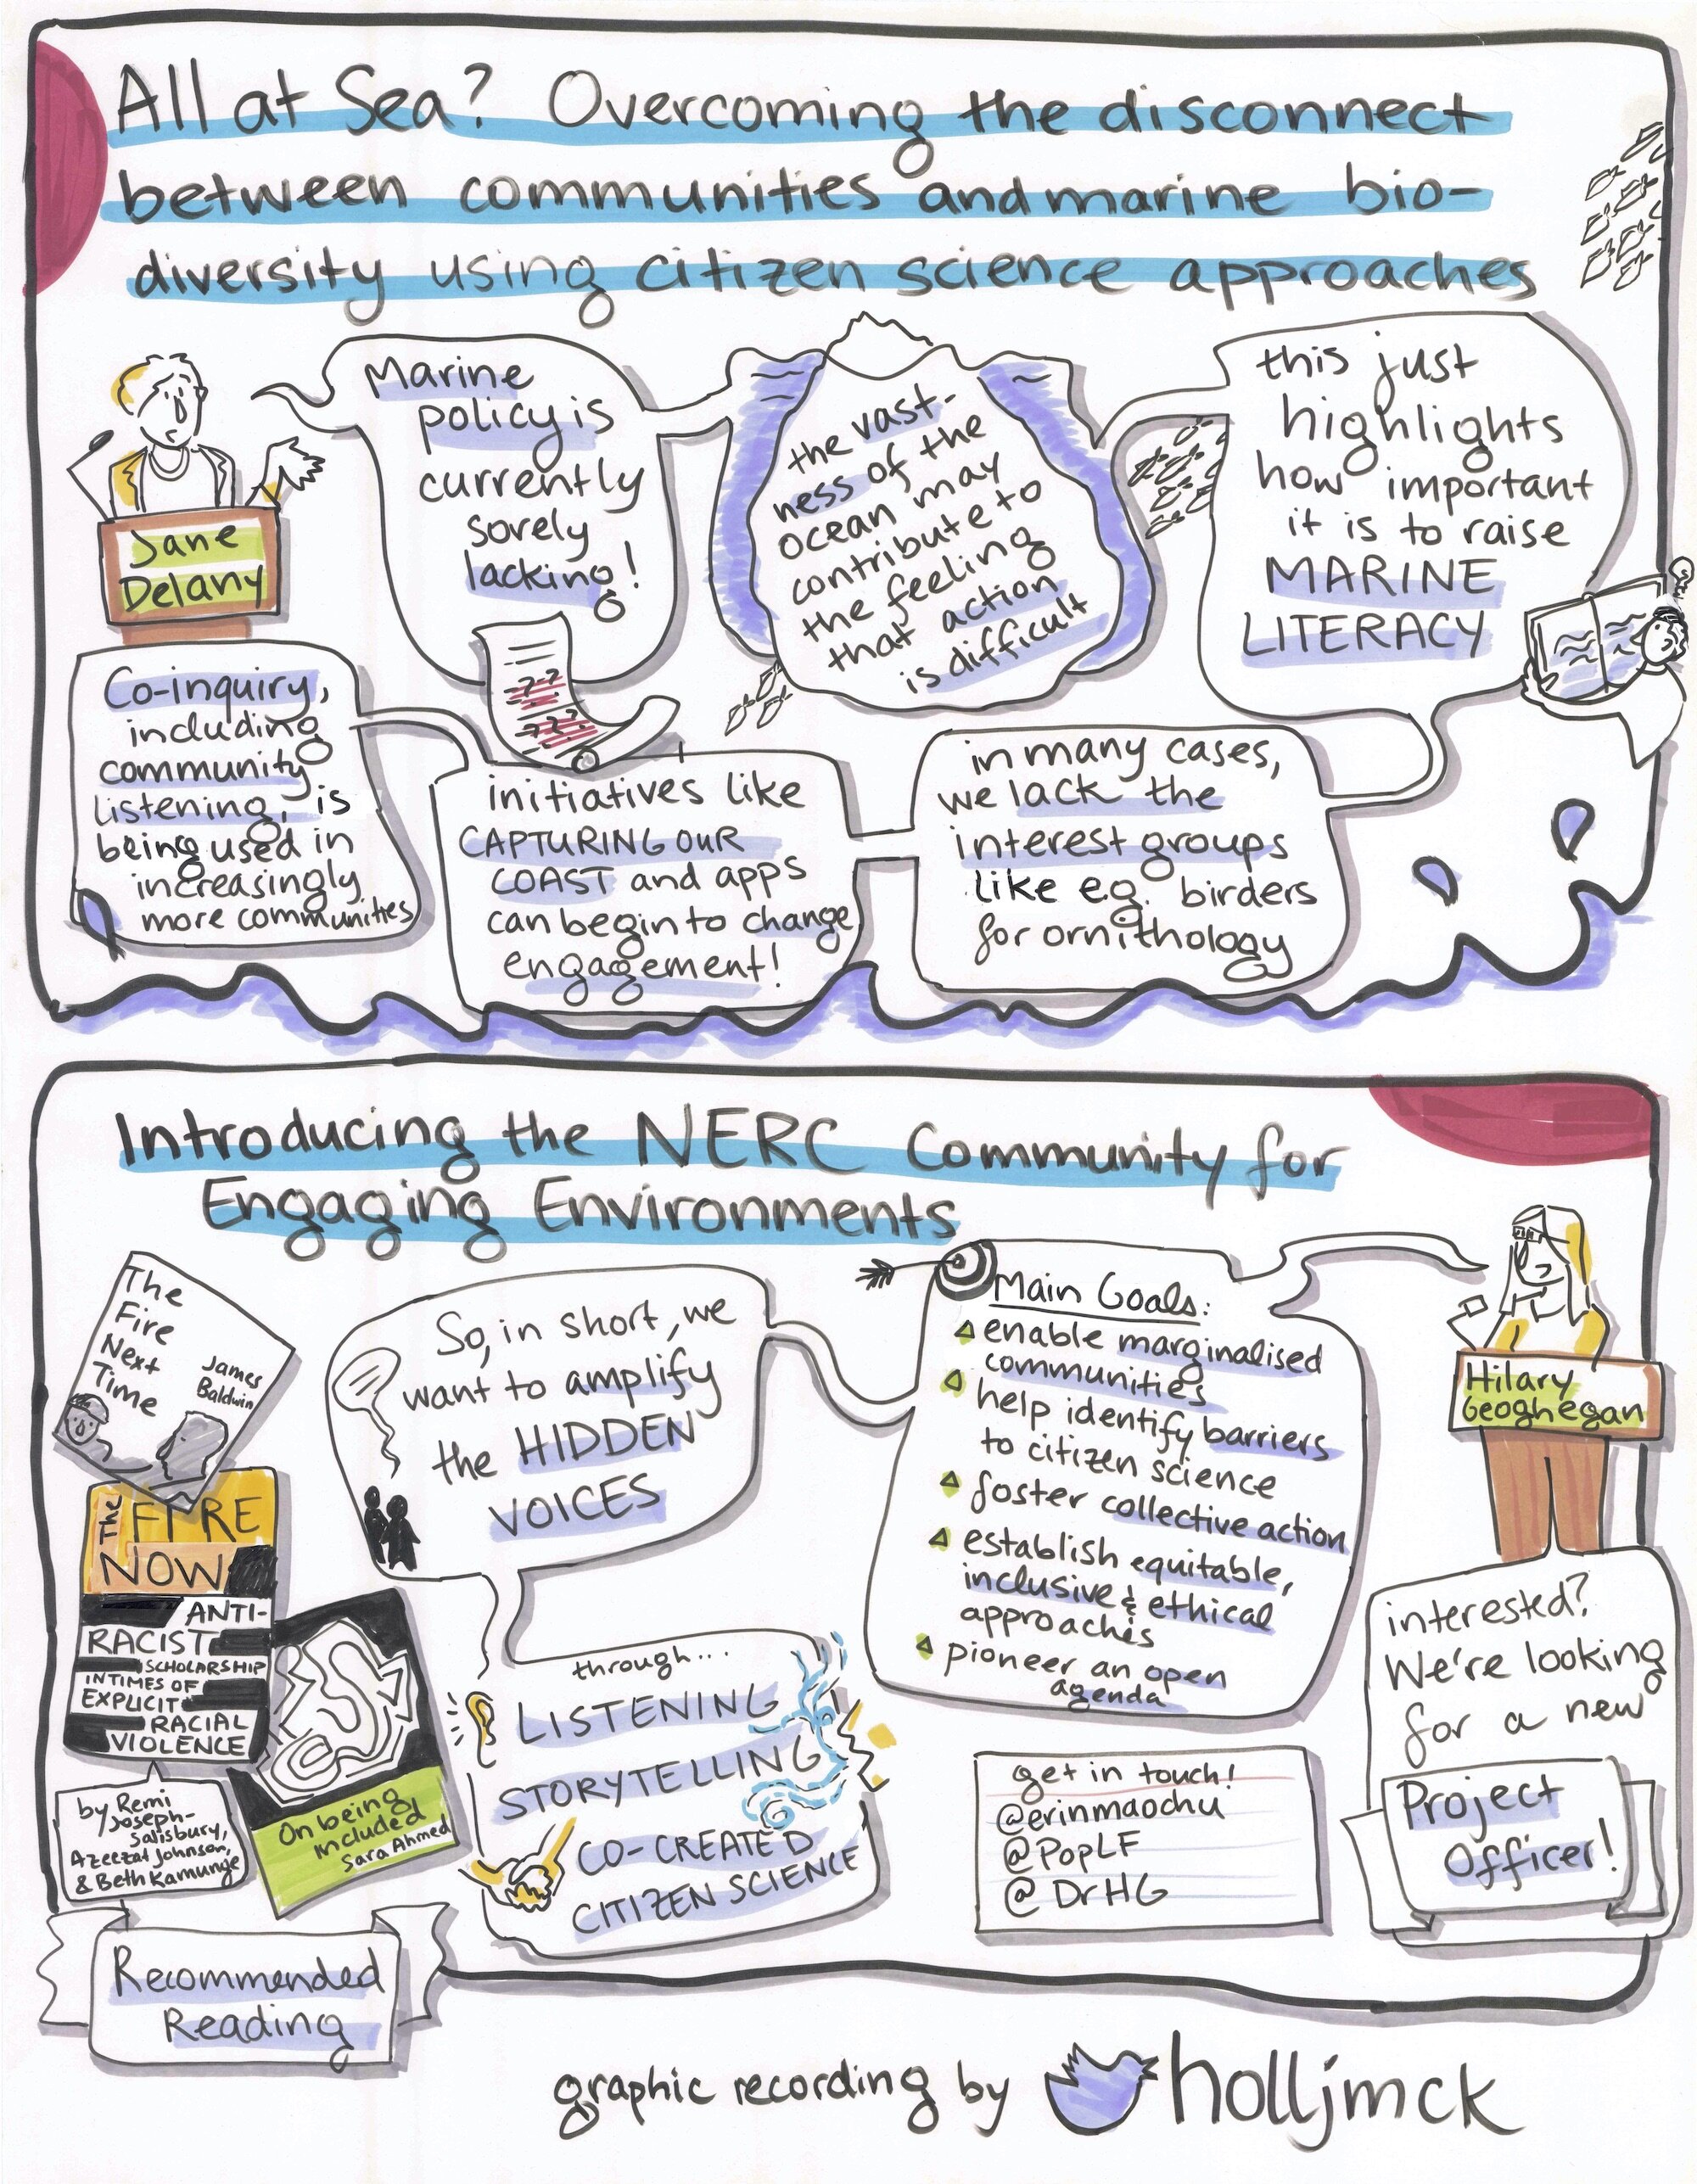 All at Sea? Overcoming the disconnect
between communities and marine bio-
diversity using citizen science approaches
Jane
Delany
Marine
policy is
currently
sorely
lacking!
??
??
the vast-
ness of the
ocean may
contribute to
the feeling
that action
is difficult
this just
highlights
how important
it is to raise
MARINE
LITERACY
in many cases,
we lack the
interest groups
like e.g. birders
for ornithology
initiatives like
CAPTURING OUR
COAST and apps
can begin to change
engagement!
Co-inquiry,
including
community
listening, is
being used in
increasingly
more communities
Introducing the NERC Community for
Engaging Environments
Hilary
Geoghegan
Main Goals:
enable marginalised
communities
help identify barriers
to citizen science
foster collective action
establish equitable,
inclusive & ethical
approaches
pioneer an open
agenda
So, in short, we
want to amplify
the HIDDEN
VOICES
through...
LISTENING
STORYTELLING
CO-CREATED
CITIZEN SCIENCE
The
Fire
Next
Time
James
Baldwin
The FIRE
NOW
ANTI-
RACIST
SCHOLARSHIP
IN TIMES OF
EXPLICIT
RACIAL
VIOLENCE
by Remi
Joseph-
Salisbury,
Azeezat Johnson,
& Beth Kamunge
On being
included
Sara Ahmed
Recommended
Reading
get in touch!
@erinmaochu
@PopLF
@DrHG
interested?
We're looking
for a new
Project
Officer!
graphic recording by holljmck